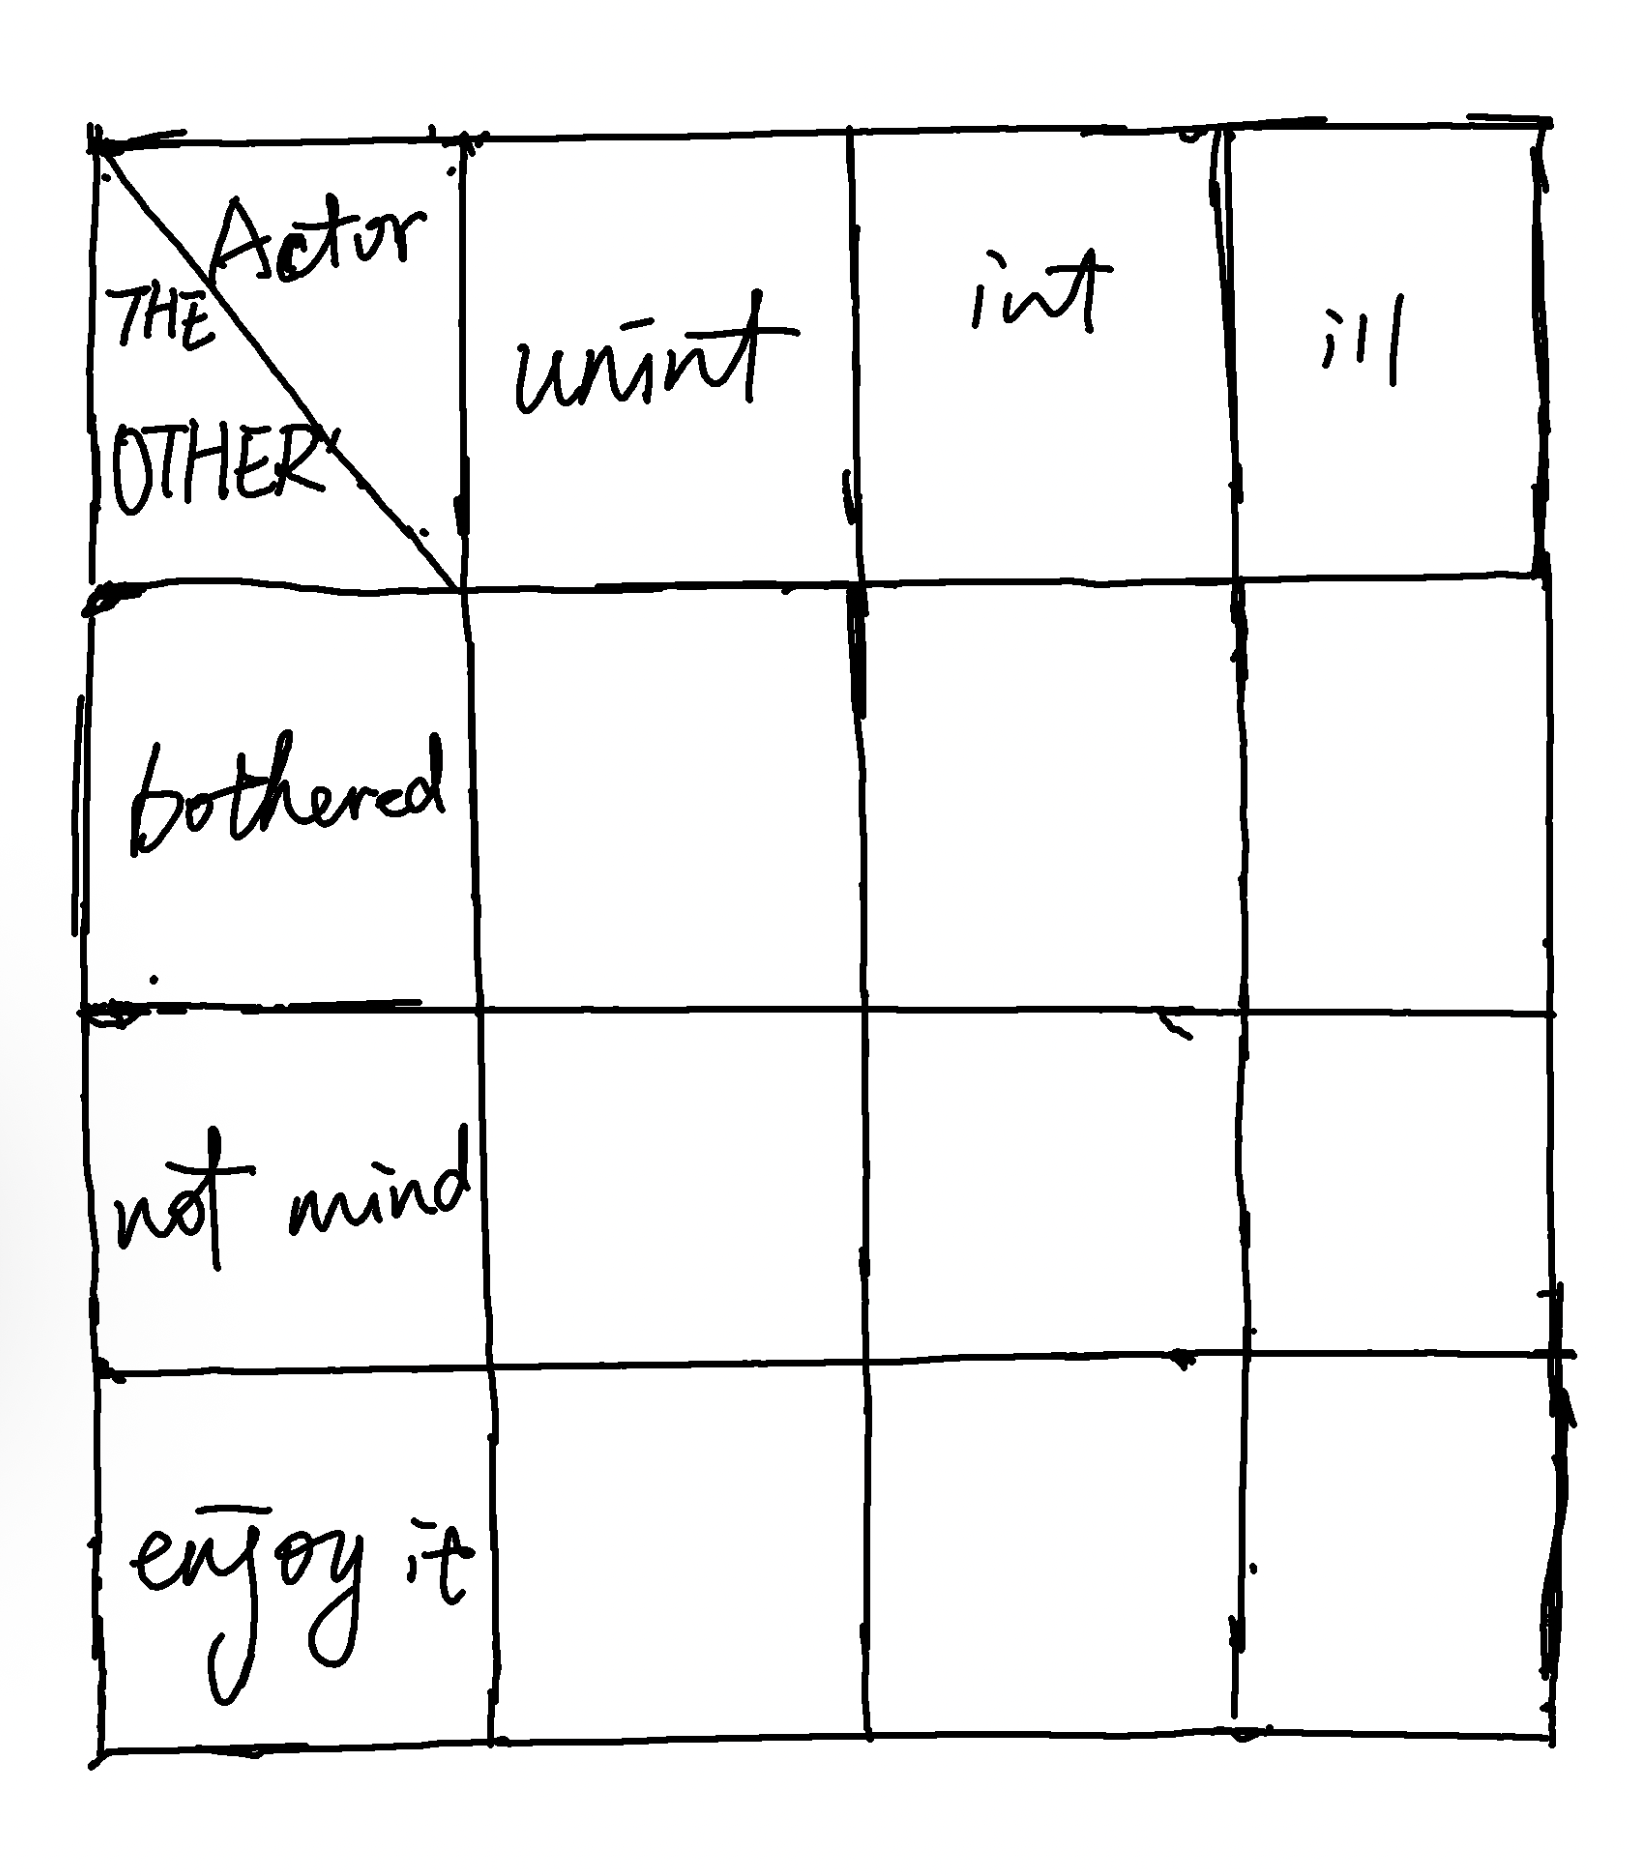 Actor
THE
OTHER
unint
int
ill
bothered
not mind
enjoy it